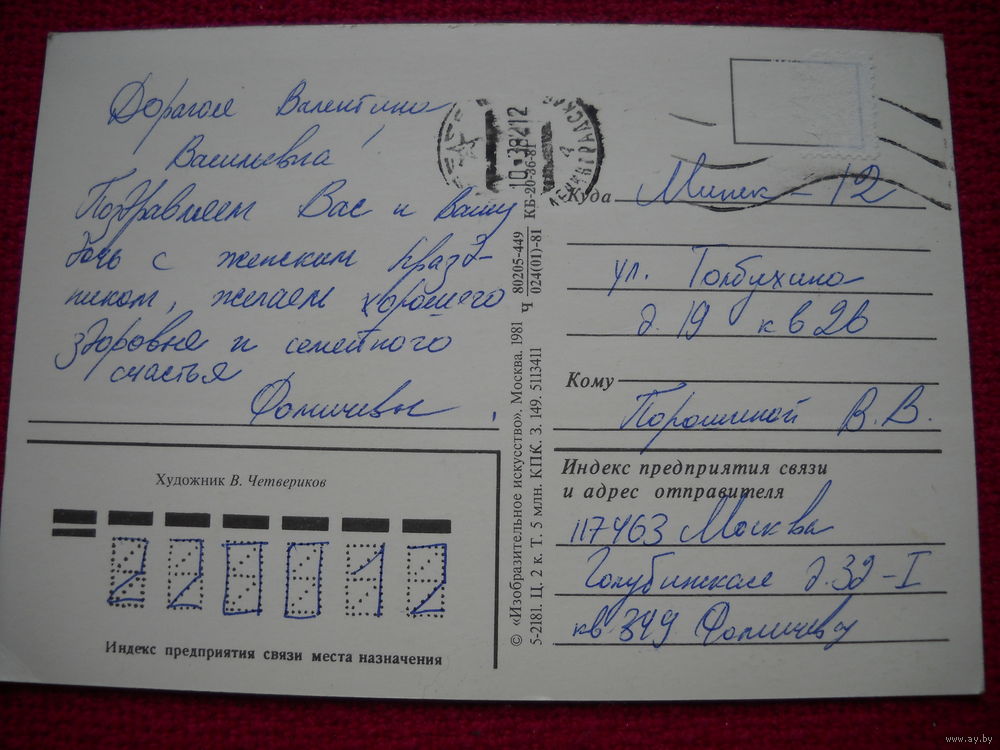 Дорогая Валентина
Васильевна!
Поздравляем Вас и Вашу
дочь с женским празд-
ником, желаем хорошего
здоровья и семейного
счастья
Фомичевы.
Художник В. Четвериков
220012
Индекс предприятия связи места назначения
© «Изобразительное искусство». Москва. 1981
5-2181. Ц. 2 к. Т. 5 млн. КПК. З. 149. 5113411
Ч 80205-449
024(01)-81 КБ-20-36-81
10-38212
Куда Минск-12
ул. Толбухина
д. 19 кв 26
Кому
Порошиной В. В.
Индекс предприятия связи
и адрес отправителя
117463 Москва
Голубинская д. 32-I
кв 349 Фомичевы
www.ay.by